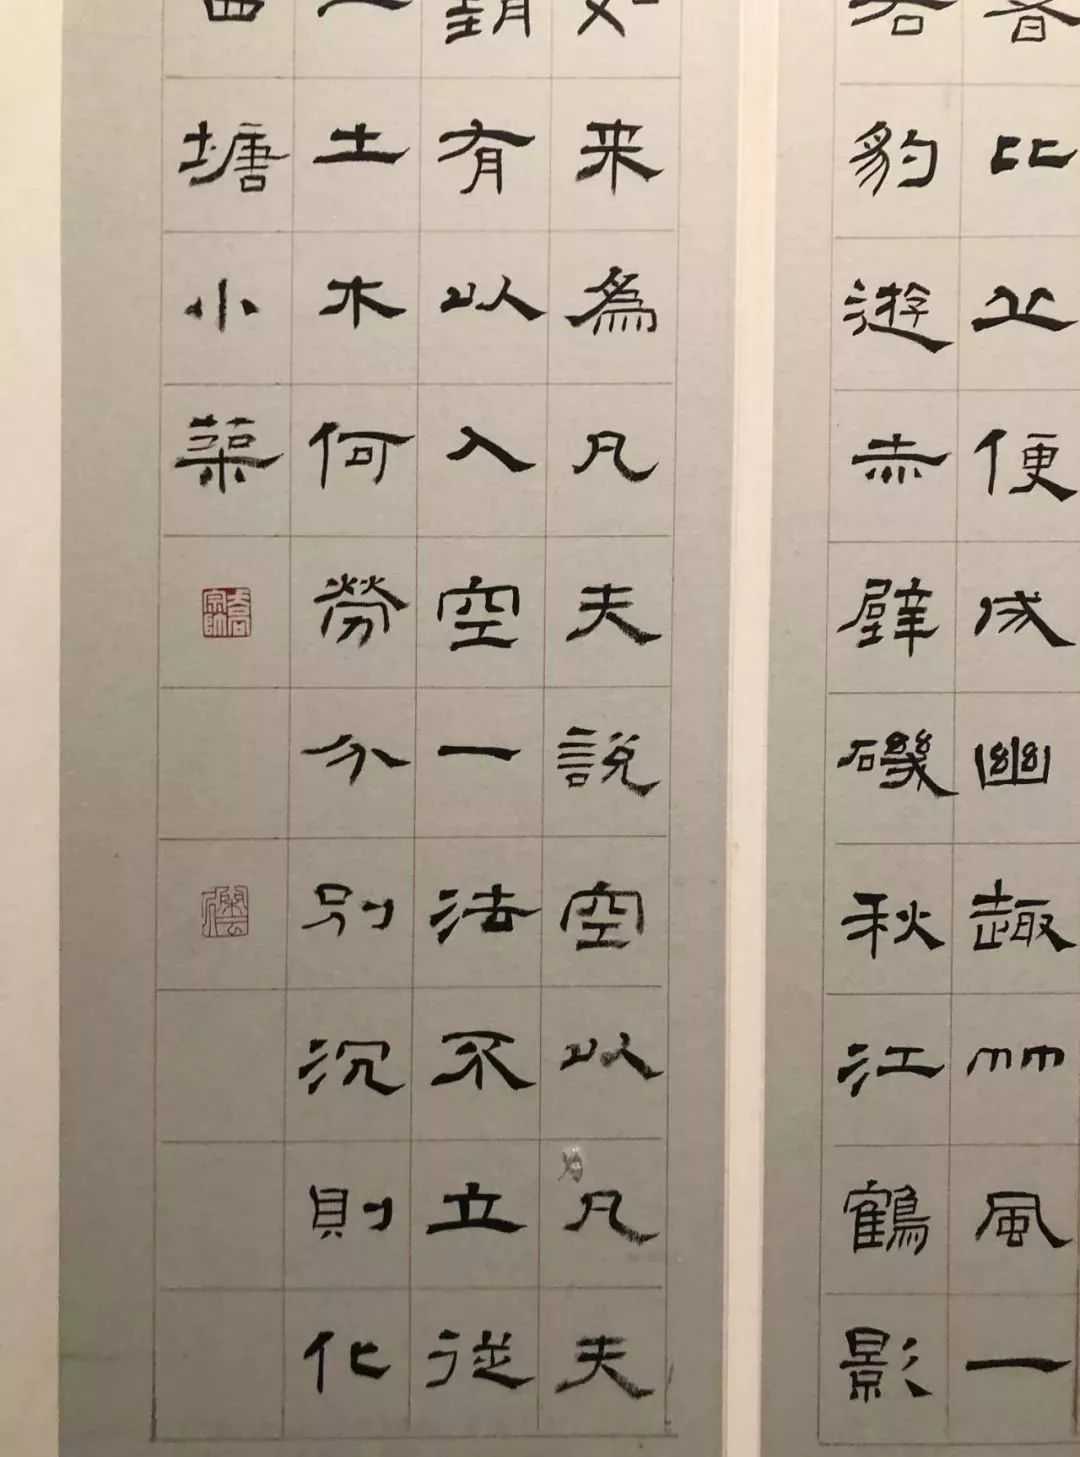 比丘便成幽趣竹風一
豹遊赤壁磯秋江鶴影
如来為凡夫說空以凡夫
有以入空一法不立從
土木何勞分別沉則化
塘小築